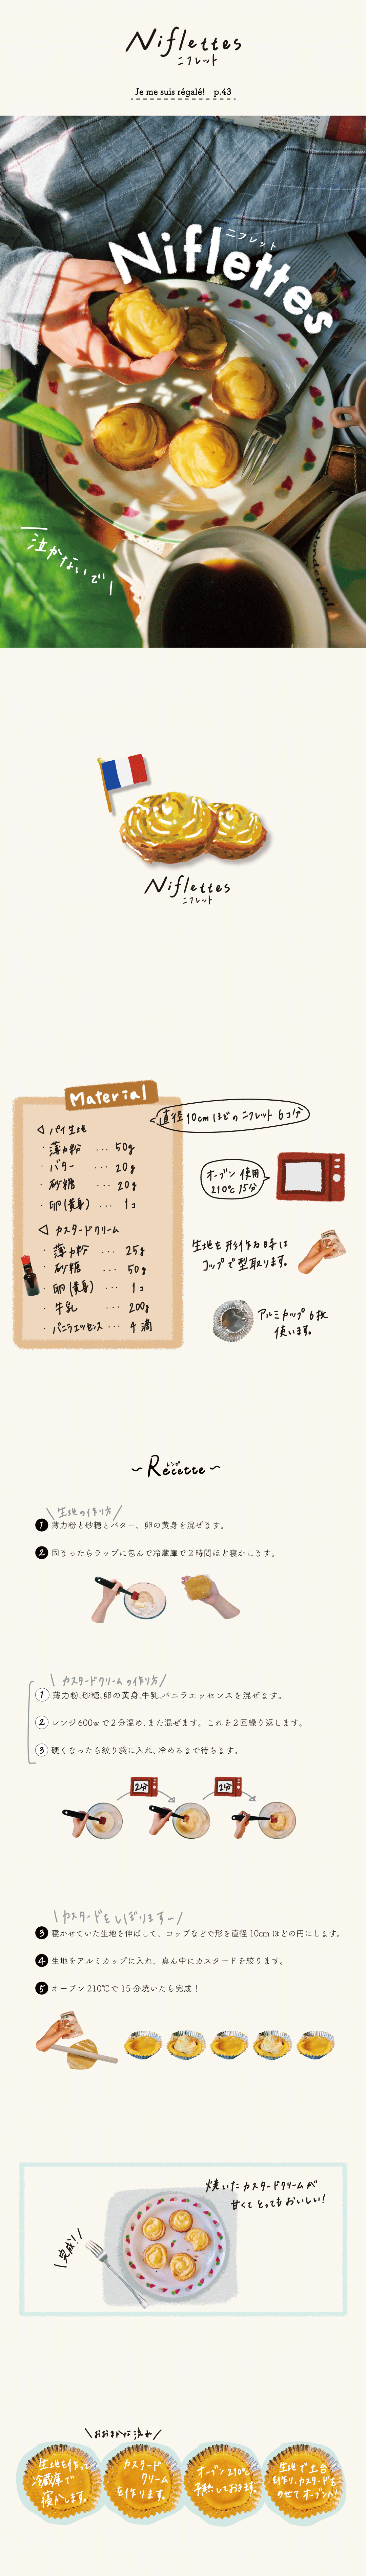 Niflettes
ニフレット
Je me suis régalé! p.43
ニフレット
Niflettes
泣かないで
Wonderful
Niflettes
ニフレット
Material
直径10cmほどのニフレット6コ分
◁ パイ生地
・薄力粉 … 50g
・バター … 20g
・砂糖 … 20g
・卵(黄身) … 1コ
◁ カスタードクリーム
・薄力粉 … 25g
・砂糖 … 50g
・卵(黄身) … 1コ
・牛乳 … 200g
・バニラエッセンス … 4滴
オーブン使用
210℃ 15分
生地を形作る時は
コップで型取ります。
アルミカップ6枚
使います。
レシピ
~Recette~
\生地の作り方/
1 薄力粉と砂糖とバター、卵の黄身を混ぜます。
2 固まったらラップに包んで冷蔵庫で2時間ほど寝かします。
\カスタードクリームの作り方/
1 薄力粉、砂糖、卵の黄身、牛乳、バニラエッセンスを混ぜます。
2 レンジ600wで2分温め、また混ぜます。これを2回繰り返します。
3 硬くなったら絞り袋に入れ、冷めるまで待ちます。
2分
2分
\カスタードをしぼります〜/
3 寝かせていた生地を伸ばして、コップなどで形を直径10cmほどの円にします。
4 生地をアルミカップに入れ、真ん中にカスタードを絞ります。
5 オーブン210℃で15分焼いたら完成！
焼いたカスタードクリームが
甘くてとってもおいしい！
\完成！/
\おおまかな流れ/
生地を作って
冷蔵庫で
寝かします。
カスタード
クリーム
を作ります。
オーブン210℃
予熱しておきます。
生地で土台
を作り、カスタードを
のせてオーブンへ！